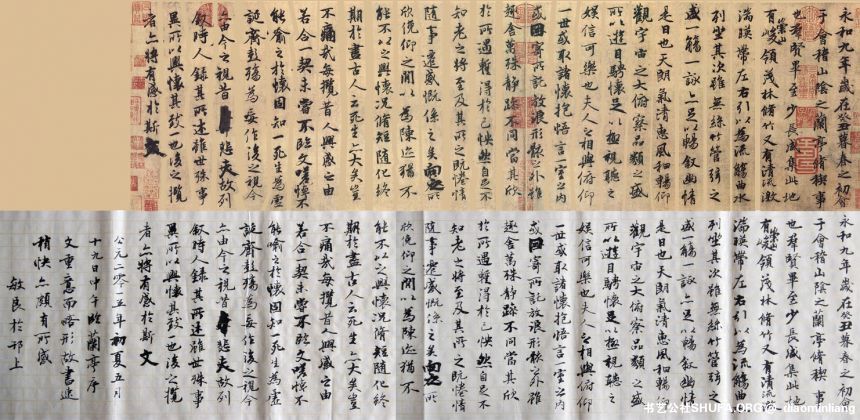 永和九年歲在癸丑暮春之初會
于會稽山陰之蘭亭脩稧事
也羣賢畢至少長咸集此地
有崇山峻領茂林脩竹又有清流激
湍暎帶左右引以為流觴曲水
列坐其次雖無絲竹管弦之
盛一觴一詠亦足以暢敘幽情
是日也天朗氣清惠風和暢仰
觀宇宙之大俯察品類之盛
所以遊目騁懷足以極視聽之
娛信可樂也夫人之相與俯仰
一世或取諸懷抱悟言一室之內
或因寄所託放浪形骸之外雖
趣舍萬殊靜躁不同當其欣
於所遇蹔得於己怏然自足不
知老之將至及其所之既惓情
隨事遷感慨係之矣向之所
欣俛仰之閒以為陳迹猶不
能不以之興懷況脩短隨化終
期於盡古人云死生亦大矣豈
不痛哉每攬昔人興感之由
若合一契未嘗不臨文嗟悼不
能喻之於懷固知一死生為虛
誕齊彭殤為妄作後之視今
亦由今之視昔悲夫故列
敘時人錄其所述雖世殊事
異所以興懷其致一也後之攬
者亦將有感於斯文
永和九年歲在癸丑暮春之初會
于會稽山陰之蘭亭脩稧事
也羣賢畢至少長咸集此地
有崇山峻領茂林脩竹又有清流激
湍暎帶左右引以為流觴曲水
列坐其次雖無絲竹管弦之
盛一觴一詠亦足以暢敘幽情
是日也天朗氣清惠風和暢仰
觀宇宙之大俯察品類之盛
所以遊目騁懷足以極視聽之
娛信可樂也夫人之相與俯仰
一世或取諸懷抱悟言一室之內
或因寄所託放浪形骸之外雖
趣舍萬殊靜躁不同當其欣
於所遇蹔得於己怏然自足不
知老之將至及其所之既惓情
隨事遷感慨係之矣向之所
欣俛仰之閒以為陳迹猶不
能不以之興懷況脩短隨化終
期於盡古人云死生亦大矣豈
不痛哉每攬昔人興感之由
若合一契未嘗不臨文嗟悼不
能喻之於懷固知一死生為虛
誕齊彭殤為妄作後之視今
亦由今之視昔悲夫故列
敘時人錄其所述雖世殊事
異所以興懷其致一也後之攬
者亦將有感於斯文
公元二零一五年初夏五月
十九日中午臨蘭亭序
文重意而略形故書速
稍快亦頗有所感
敏民於邗上
书艺公社SHUFA.ORG@_diaominliang